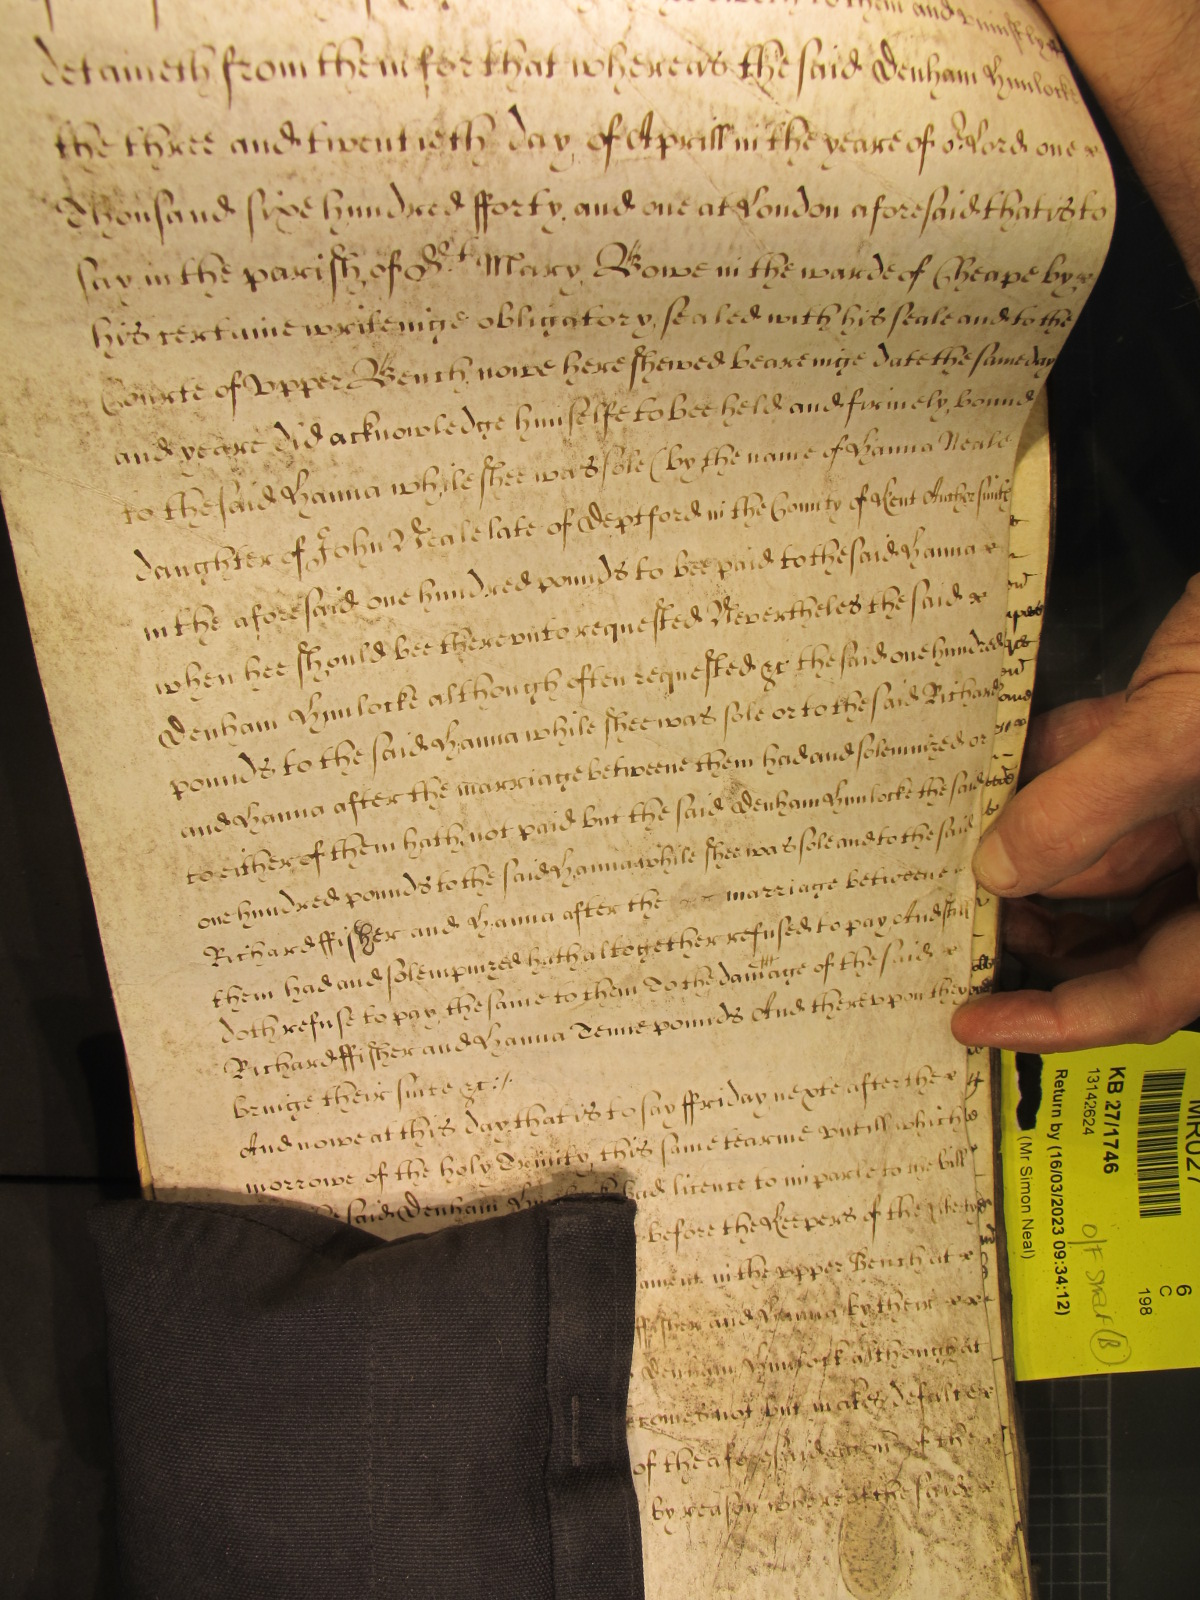 to them and uniustly
detaineth from them for that whereas the said Denham Hunlocke
the three and twentieth day of Aprill in the yeare of or Lord one
Thousand sixe hundred fforty and one at London aforesaid that is to
say in the parish of St Mary Bowe in the warde of Cheape by
his certaine writeinge obligatory sealed with his seale and to the
Courte of Vpper Bench nowe here shewed beareinge date the same day
and yeare did acknowledge himselfe to bee held and firmely bound
to the said Hanna while shee was sole (by the name of Hanna Neale
daughter of John Neale late of Deptford in the County of Kent
in the aforesaid one hundred pounds to bee paid to the said Hanna
when hee should bee therevnto requested Neverthelesse the said
Denham Hunlocke although often requested &c the said one hundred
pounds to the said Hanna while shee was sole or to the said Richard
and Hanna after the marriage betweene them had and solemnized or
to either of them hath not paid but the said Denham Hunlocke the said
one hundred pounds to the said Hanna while shee was sole and to the said
Richard ffisher and Hanna after the marriage betweene
them had and solempnized hath altogether refused to pay And still
doth refuse to pay the same to them To the damage of the said
Richard ffisher and Hanna Tenne pounds And therevpon they
bringe their suite &c
And nowe at this day that is to say ffriday nexte after the
morrowe of the holy Trinity this same tearme vntill which
said Denham had licence to imparle to the bill
before the Keepers of the
in the vpper Bench at
ffisher and Hanna by their
Denham Hunlock although at
comes not but makes defalte
of the aforesaid of the
by reason whereof the said
KB 27/1746
13142624
Return by (16/03/2023 09:34:12)
(Mr Simon Neal)
MR027
6
C
198
O/F Shelf (B)